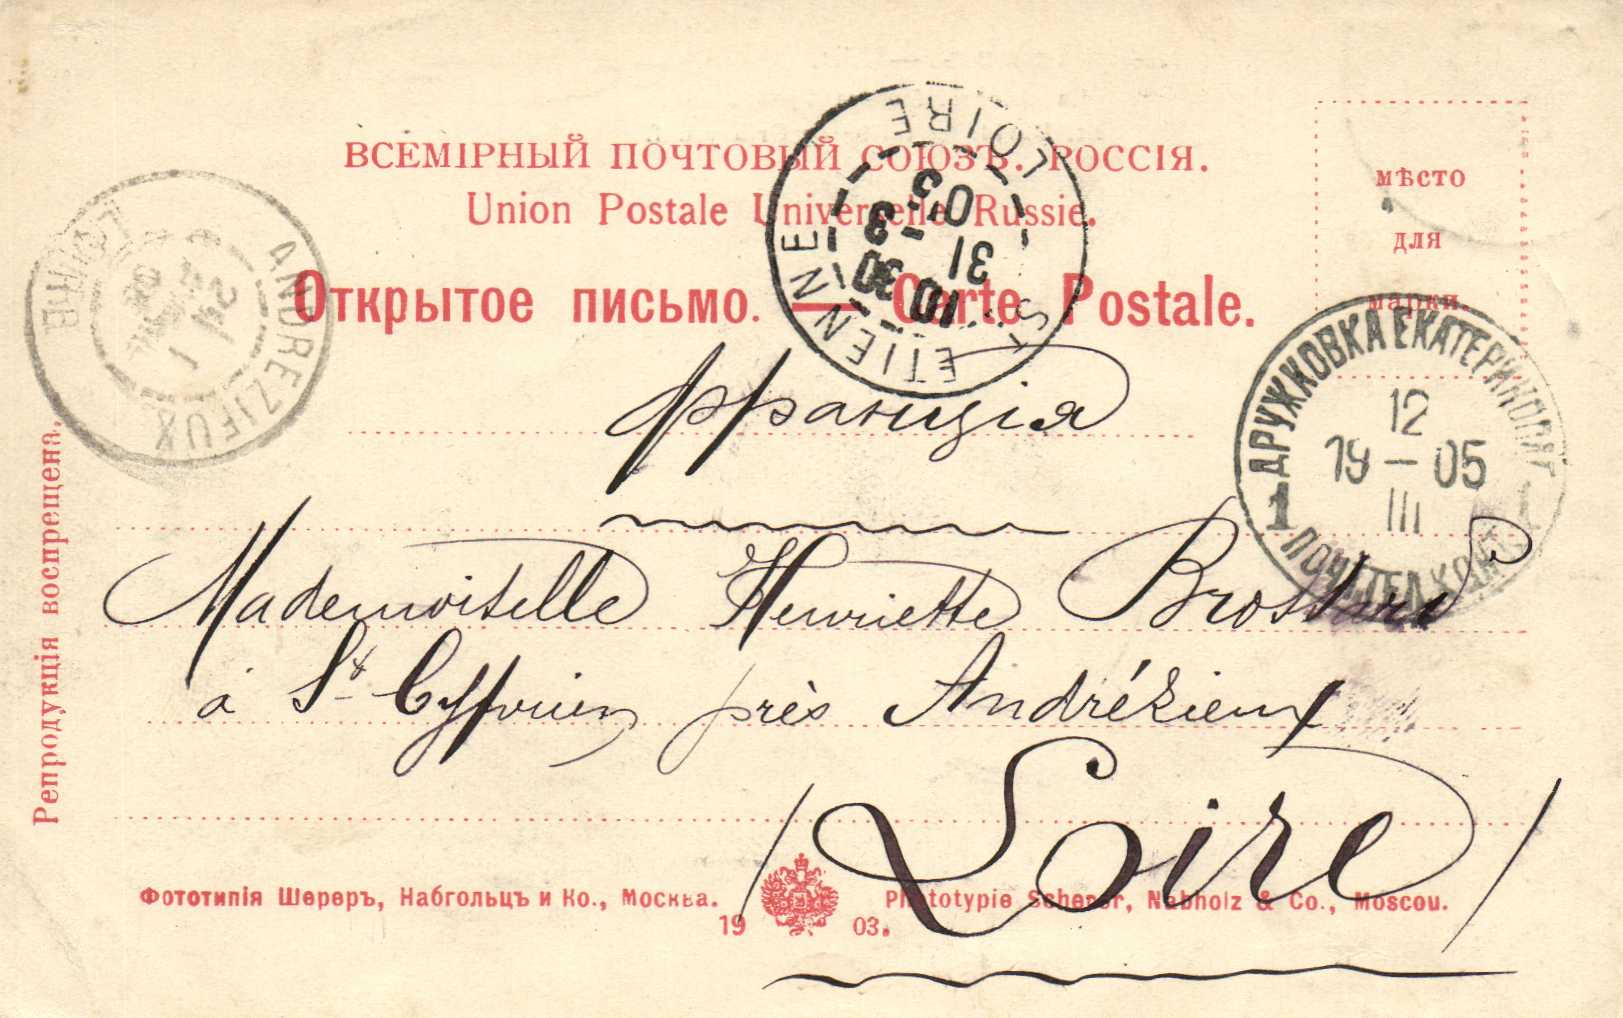 ВСЕМІРНЫЙ ПОЧТОВЫЙ СОЮЗЪ. РОССІЯ.
Union Postale Universelle Russie.
Открытое письмо. — Carte Postale.
мѣсто
для
марки.
S.T ETIENNE LOIRE
10 30
31 - 3
05
ANDREZIEUX LOIRE
ДРУЖКОВКА ЕКАТЕРИНОСЛ.
12
19 - 05
III
1 1
ПОЧ. ТЕЛ. КОНТ.
Франція
Mademoiselle Henriette Brossard
à St Cyprien près Andrézieux
Loire
Репродукція воспрещена.
Фототипія Шереръ, Набгольцъ и Ко., Москва.
Phototypie Scherer, Nabholz & Co., Moscou.
19 03.